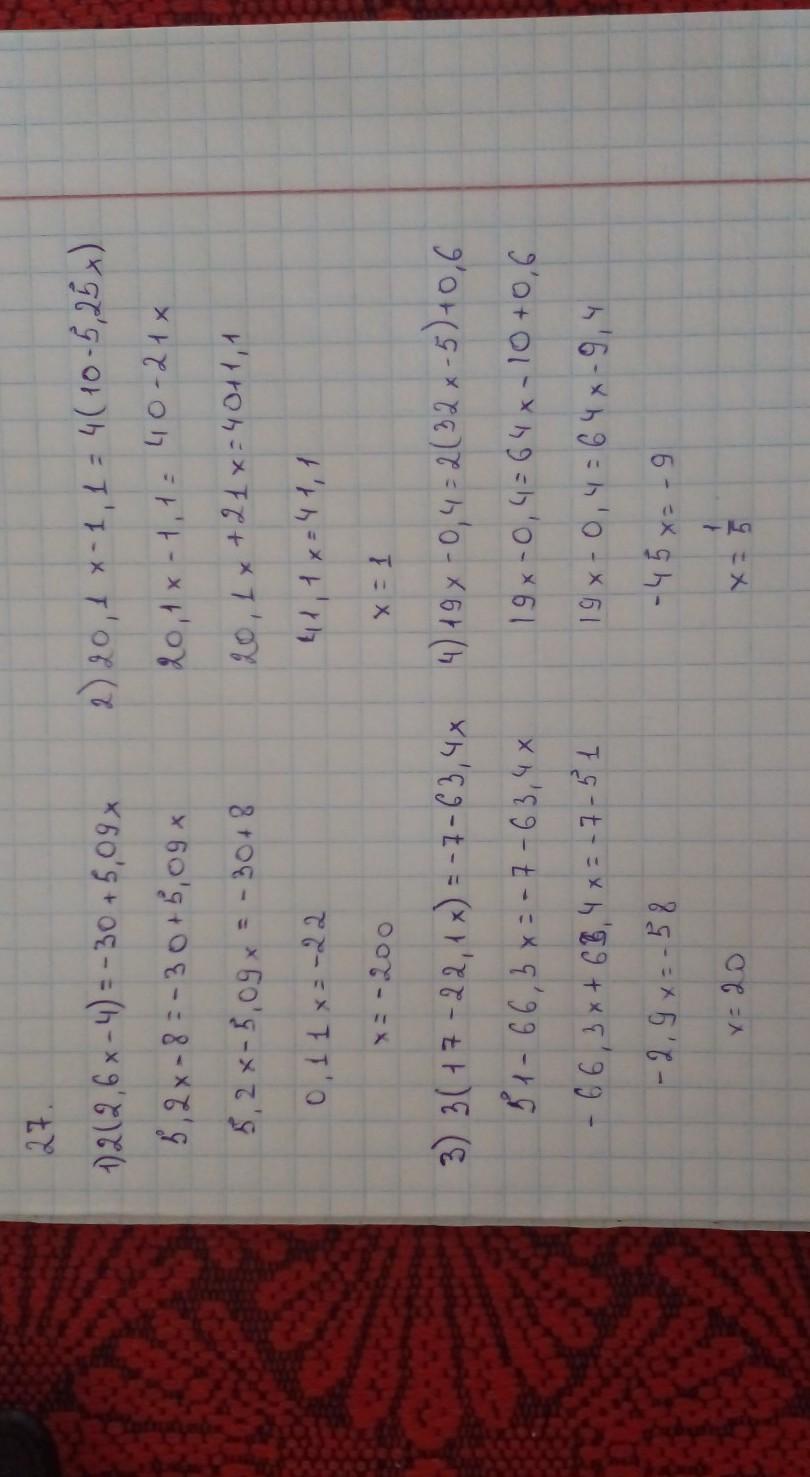 27.
1) 2(2,6x-4)=-30+5,09x
5,2x-8=-30+5,09x
5,2x-5,09x=-30+8
0,11x=-22
x=-200
2) 20,1x-1,1=4(10-5,25x)
20,1x-1,1=40-21x
20,1x+21x=40+1,1
41,1x=41,1
x=1
3) 3(17-22,1x)=-7-63,4x
51-66,3x=-7-63,4x
-66,3x+63,4x=-7-51
-2,9x=-58
x=20
4) 19x-0,4=2(32x-5)+0,6
19x-0,4=64x-10+0,6
19x-0,4=64x-9,4
-45x=-9
x=1/5